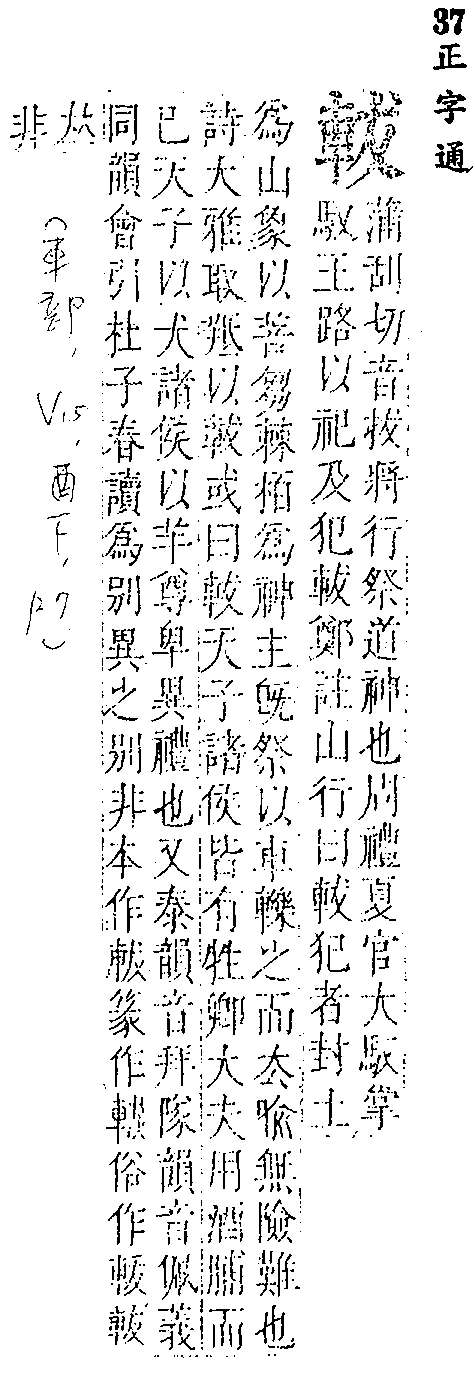 37 正字通
軷 蒲刮切音拔將行祭道神也周禮夏官大馭掌
馭王路以祀及犯軷鄭註山行曰軷犯者封土
為山象以菩芻棘栢爲神主旣祭以車轢之而去喻無險難也
詩大雅取羝以軷或曰軷天子諸侯皆有牲卿大夫用酒脯而
已天子以犬諸侯以羊尊卑異禮也又泰韻音拜隊韻音佩義
同韻會引杜子春讀爲別異之別非本作軷篆作 俗作 軷
𠀤非
(車部, V15, 酉下, P7)